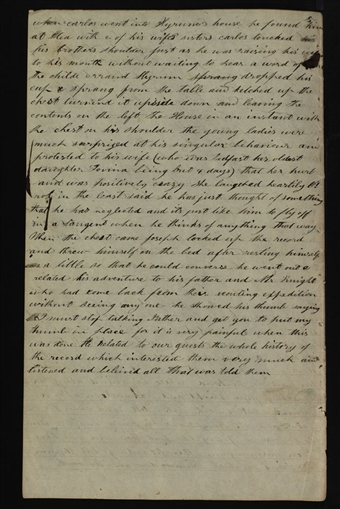 when carlos went into Hyrums house he found him
at tea with 2 of his wifes sisters carlos touched
his brothers shoulder just as he was raising his cup
to his mouth without waiting to hear a word of
the childs errand Hyrum sprang dropped his
cup & sprang from the table and ketched up the
chest turned it upside down and leaving the
contents on the left the House in an instant with
the chest on his shoulder the young ladies were
much surprized at his singular behaviour and
protested to his wife (who was bedfast her oldest
daughter Lovina being but 4 days) that her hus
and was positively crazy she laughed heartily Oh
not in the least said he has just thought of something
that he has neglected and its just like him to fly off
in a tangent when he thinks of anything that way
When the chest came Joseph locked up the record
and threw himself on the bed after resting himself
a little so that he could converse he went out &
related his adventure to his father and Mr. Knight
who had come back from their scouting expedition
without seeing any one he showed his thumb saying
I must stop talking Father and get you to put my
thumb in place for it is very painful when this
was done He related to our guests the whole history of
the record which interested them very much and
listened and belived all that was told them